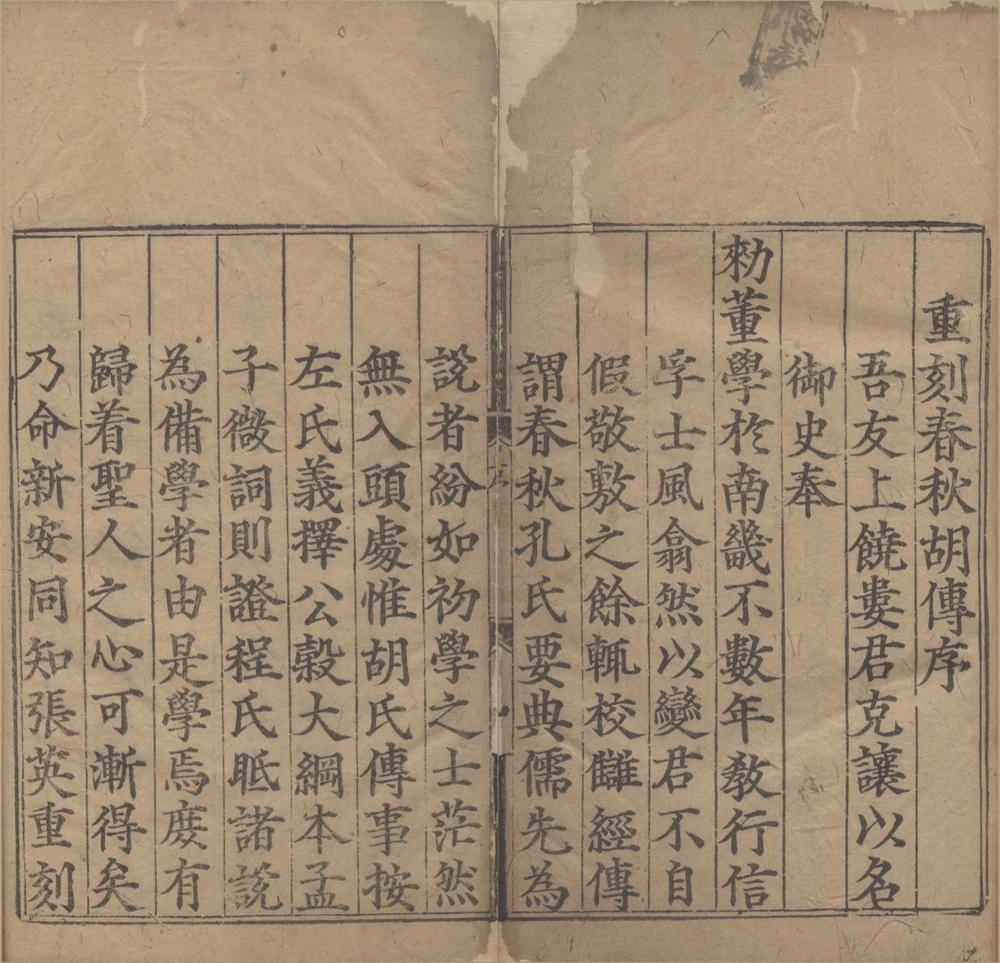 重刻春秋胡傳序
吾友上饒婁君克讓以名
御史奉
勑董學於南畿不數年教行信
孚士風翕然以變君不自
假敬敷之餘輒校讎經傳
謂春秋孔氏要典儒先為
說者紛如初學之士茫然
無入頭處惟胡氏傳事按
左氏義擇公榖大綱本孟
子微詞則證程氏眡諸說
為備學者由是學焉庶有
歸着聖人之心可漸得矣
乃命新安同知張英重刻